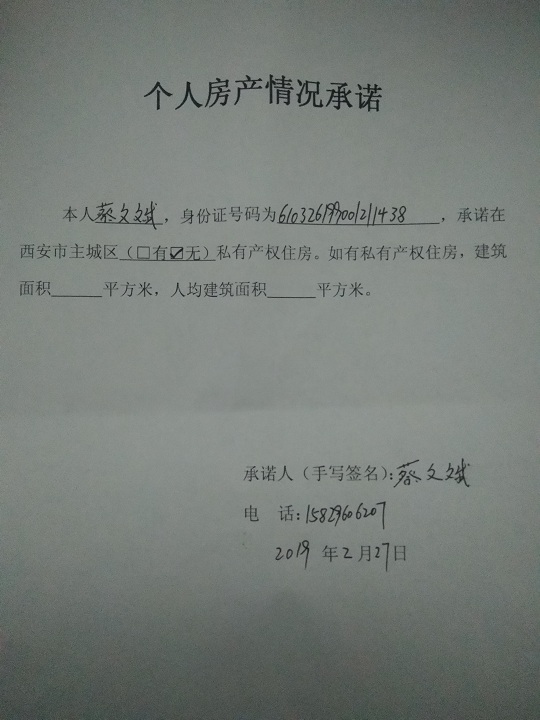 个人房产情况承诺
本人蔡文斌，身份证号码为610326199001211438，承诺在
西安市主城区（□有☑无）私有产权住房。如有私有产权住房，建筑
面积______平方米，人均建筑面积______平方米。
承诺人（手写签名）：蔡文斌
电 话：15829606207
2019 年 2 月 27 日